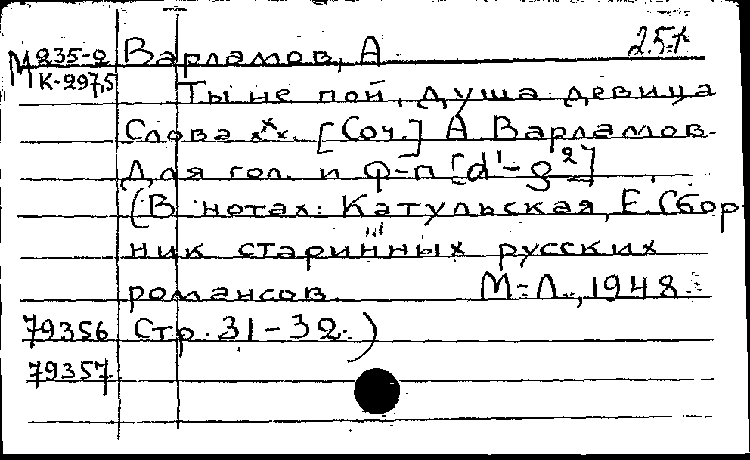 М 235-2 Варламов, А. 251
К-297,5 Ты не пой, душа девица
Слова ххх. [Соч.] А. Варламов.
Для гол. и ф-п [d¹-g²]
(В нотах: Катульская, Е. Сбор-
ник старинных русских
романсов. М-Л., 1948.
79356 Стр. 31-32.)
79357